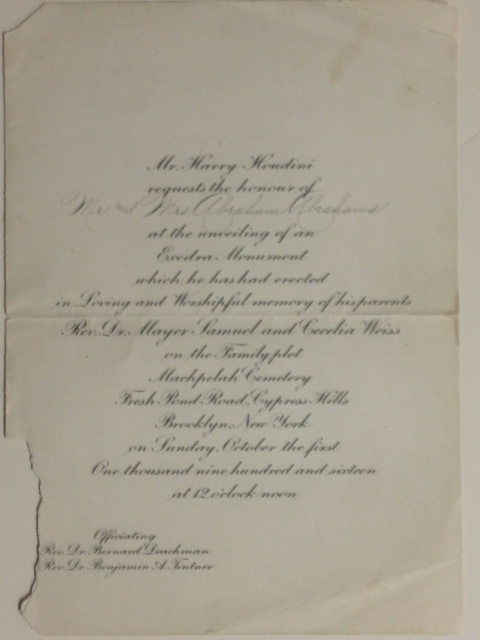 Mr. Harry Houdini
requests the honour of
Mr. and Mrs. Abraham Abrahams
at the unveiling of an
Exedra Monument
which he has had erected
in Loving and Worshipful memory of his parents
Rev. Dr. Mayer Samuel and Cecelia Weiss
on the Family plot
Machpelah Cemetery
Fresh Pond Road, Cypress Hills
Brooklyn, New York
on Sunday, October the first
One thousand nine hundred and sixteen
at 12 o'clock noon
Officiating
Rev. Dr. Bernard Drachman
Rev. Dr. Benjamin A. Tintner